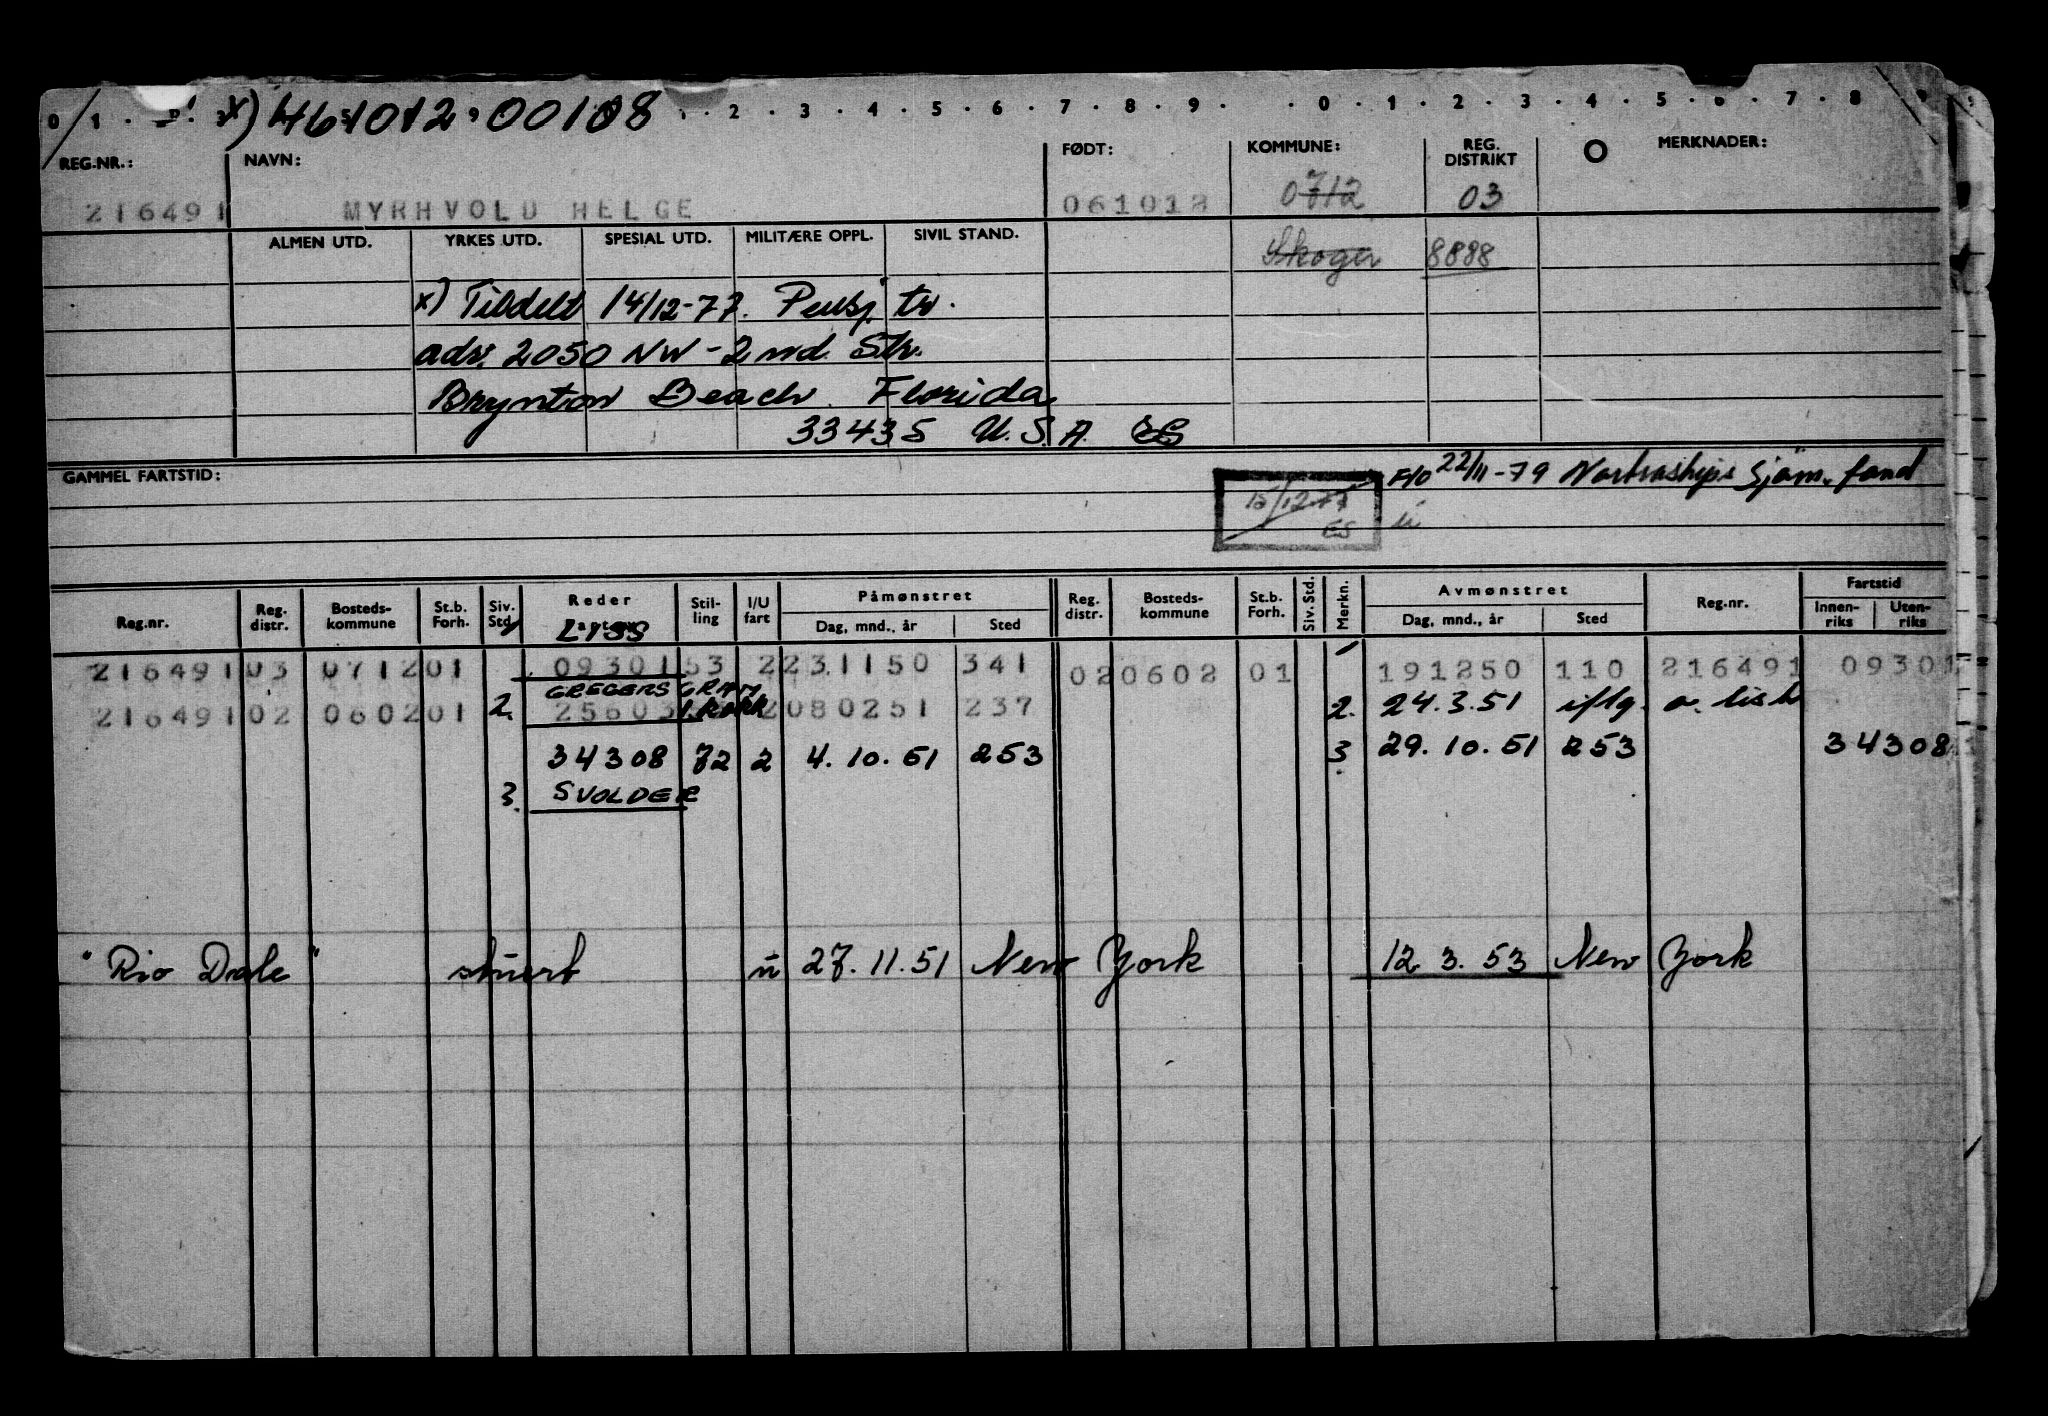 0 1 2 3 4 5 6 7 8 9 0 1 2 3 4 5 6 7 8 9
x) 461012 00108
REG.NR.: NAVN: FØDT: KOMMUNE: REG. DISTRIKT MERKNADER:
216491 MYRHVOLD HELGE 061012 0712 03
ALMEN UTD. YRKES UTD. SPESIAL UTD. MILITÆRE OPPL. SIVIL STAND. Skoger 8888
x) Tildelt 14/12-77. Pensj tr.
adr. 2050 NW - 2nd. Str.
Brynton Beach Florida
33435 U.S.A. ES
GAMMEL FARTSTID: F/o 22/11-79 Nortraships Sjøm. fond
15/12-77
ES
Reg.nr. Reg. distr. Bosteds-kommune St.b. Forh. Siv. Std. Reder Stil-ling I/U fart Påmønstret Dag, mnd., år Sted Reg. distr. Bosteds-kommune St.b. Forh. Siv. Std. Merkn. Avmønstret Dag, mnd., år Sted Reg.nr. Fartstid Innen-riks Uten-riks
LISS
216491 03 0712 01 09301 53 2 231150 341 02 0602 01 191250 110 216491 09301
GREGERS GRAM
216491 02 0602 01 2. 25603 1. kokk 2 080251 237 2. 24.3.51 iflg. a. liste
34308 72 2 4.10.51 253 3. 29.10.51 253 34308
3. SVOLDER
"Rio Dale" stuert u 27.11.51 New York 12.3.53 New York